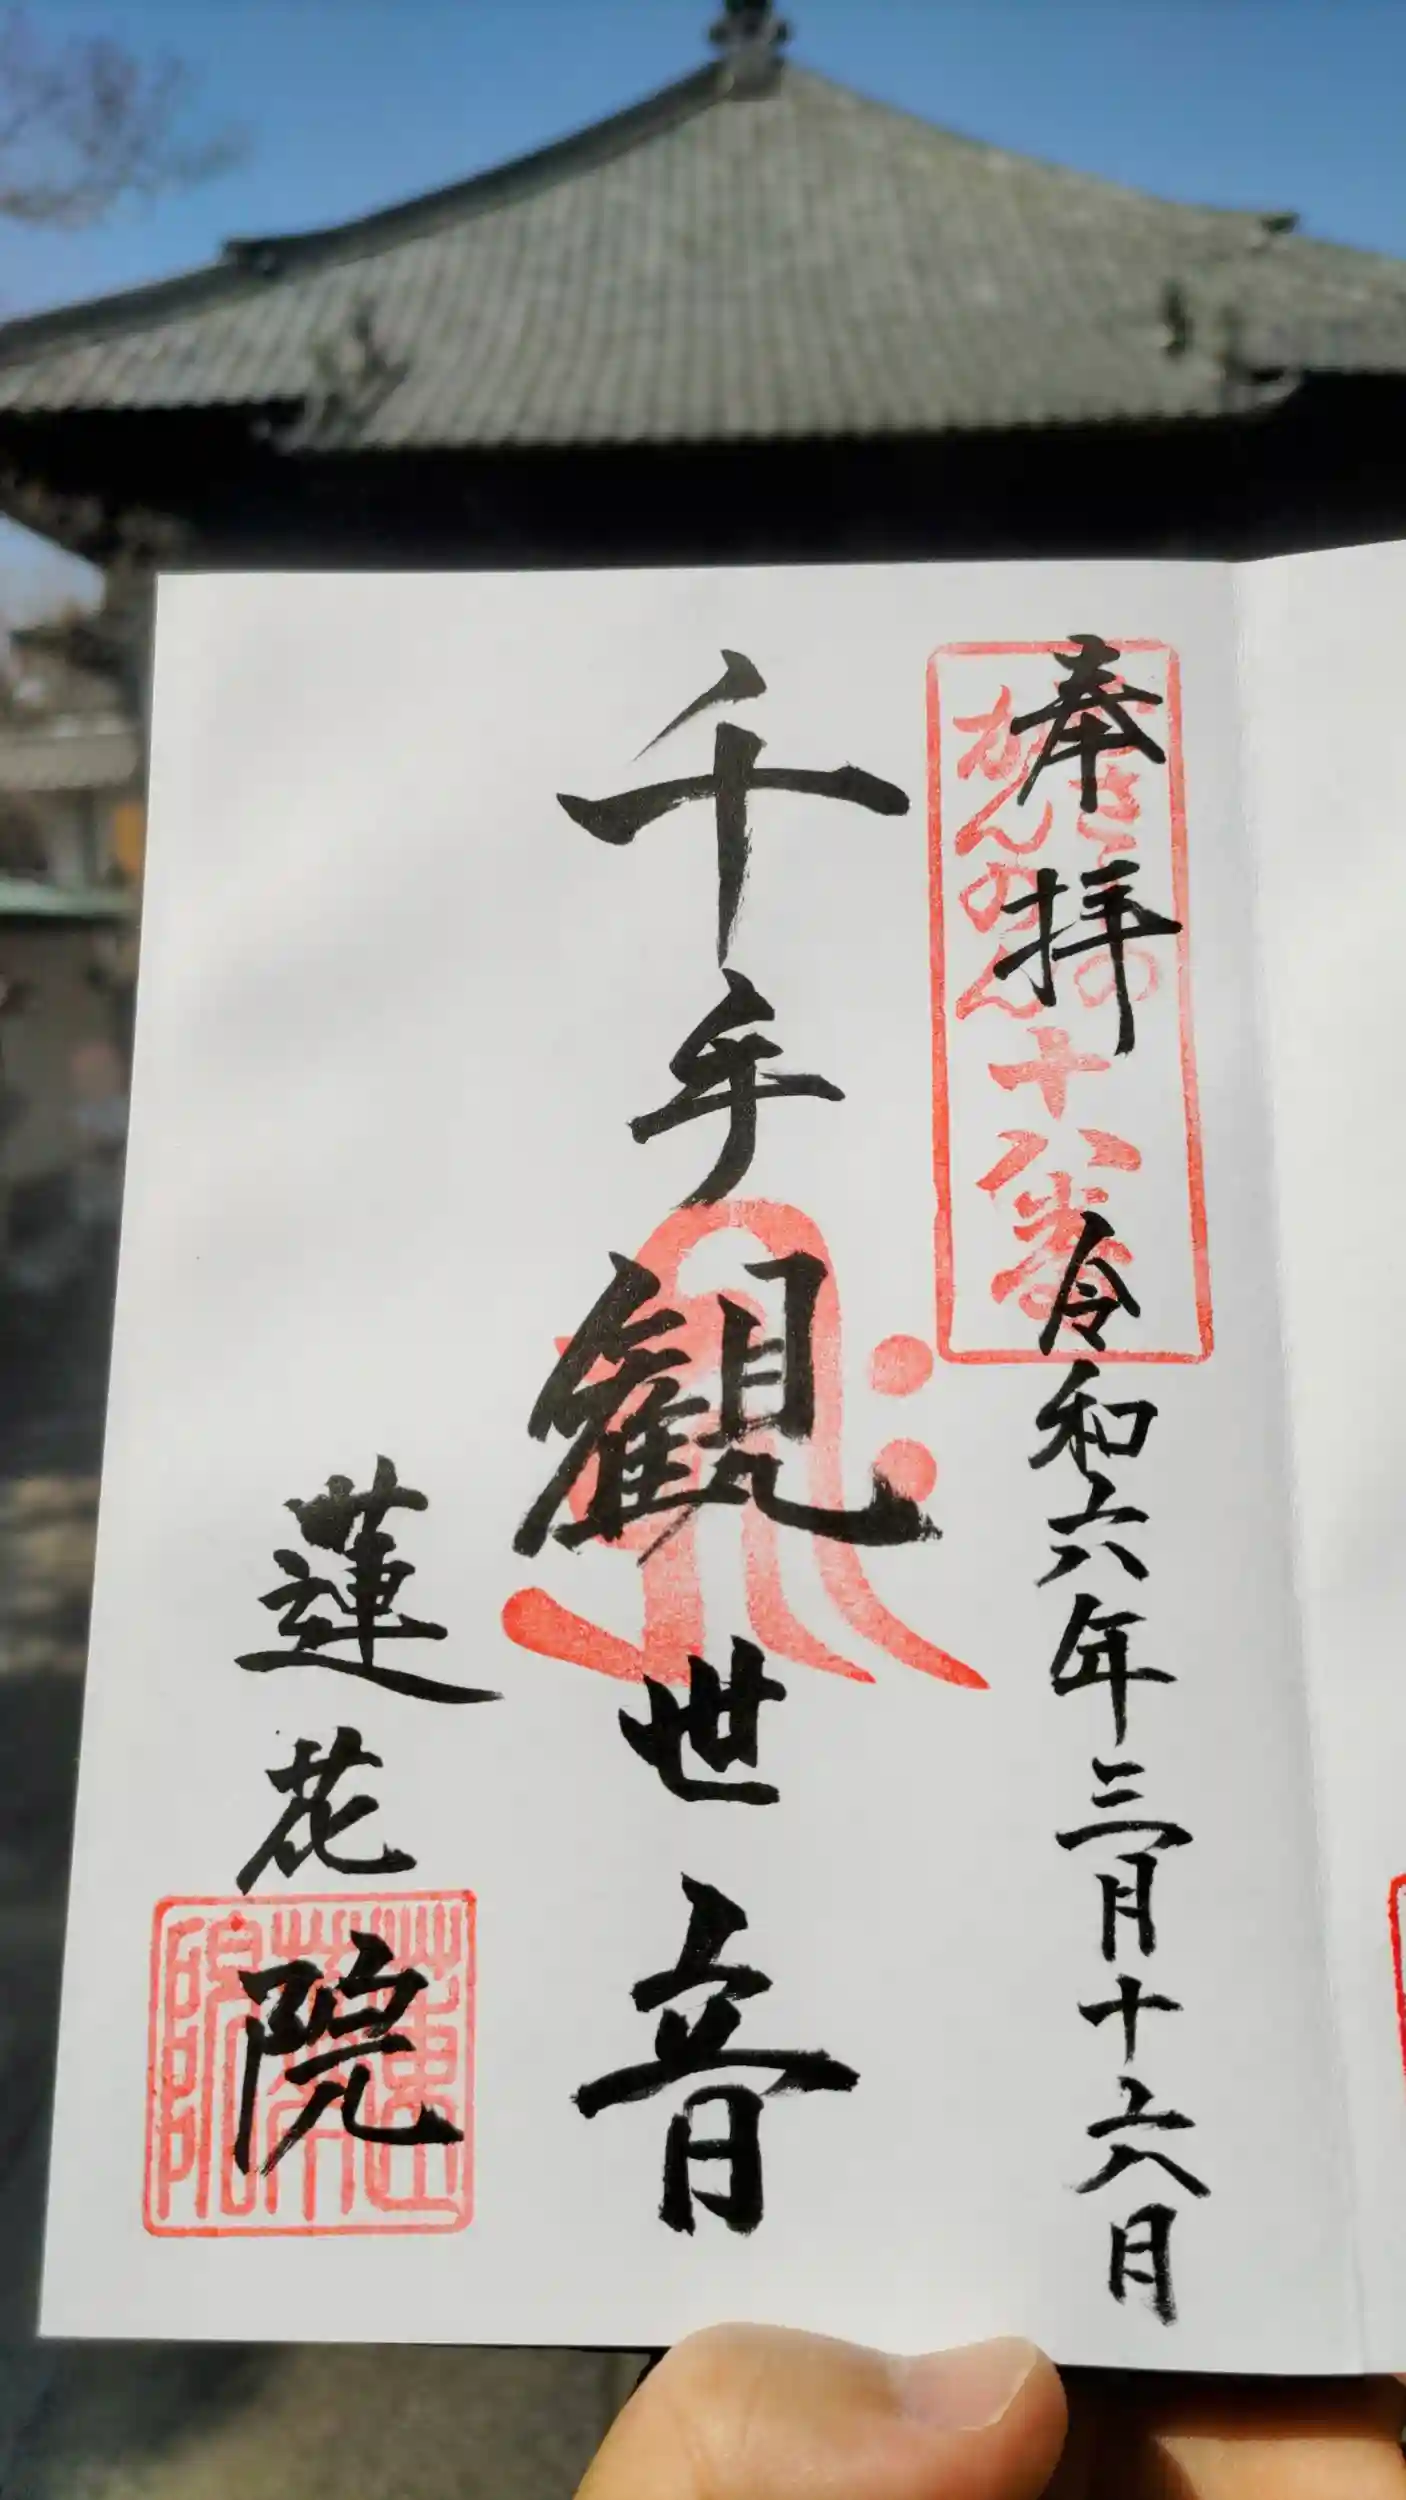 奉拝 令和六年三月十六日
むさしの
かんのん
十八番
千手観世音
蓮花院
蓮華院